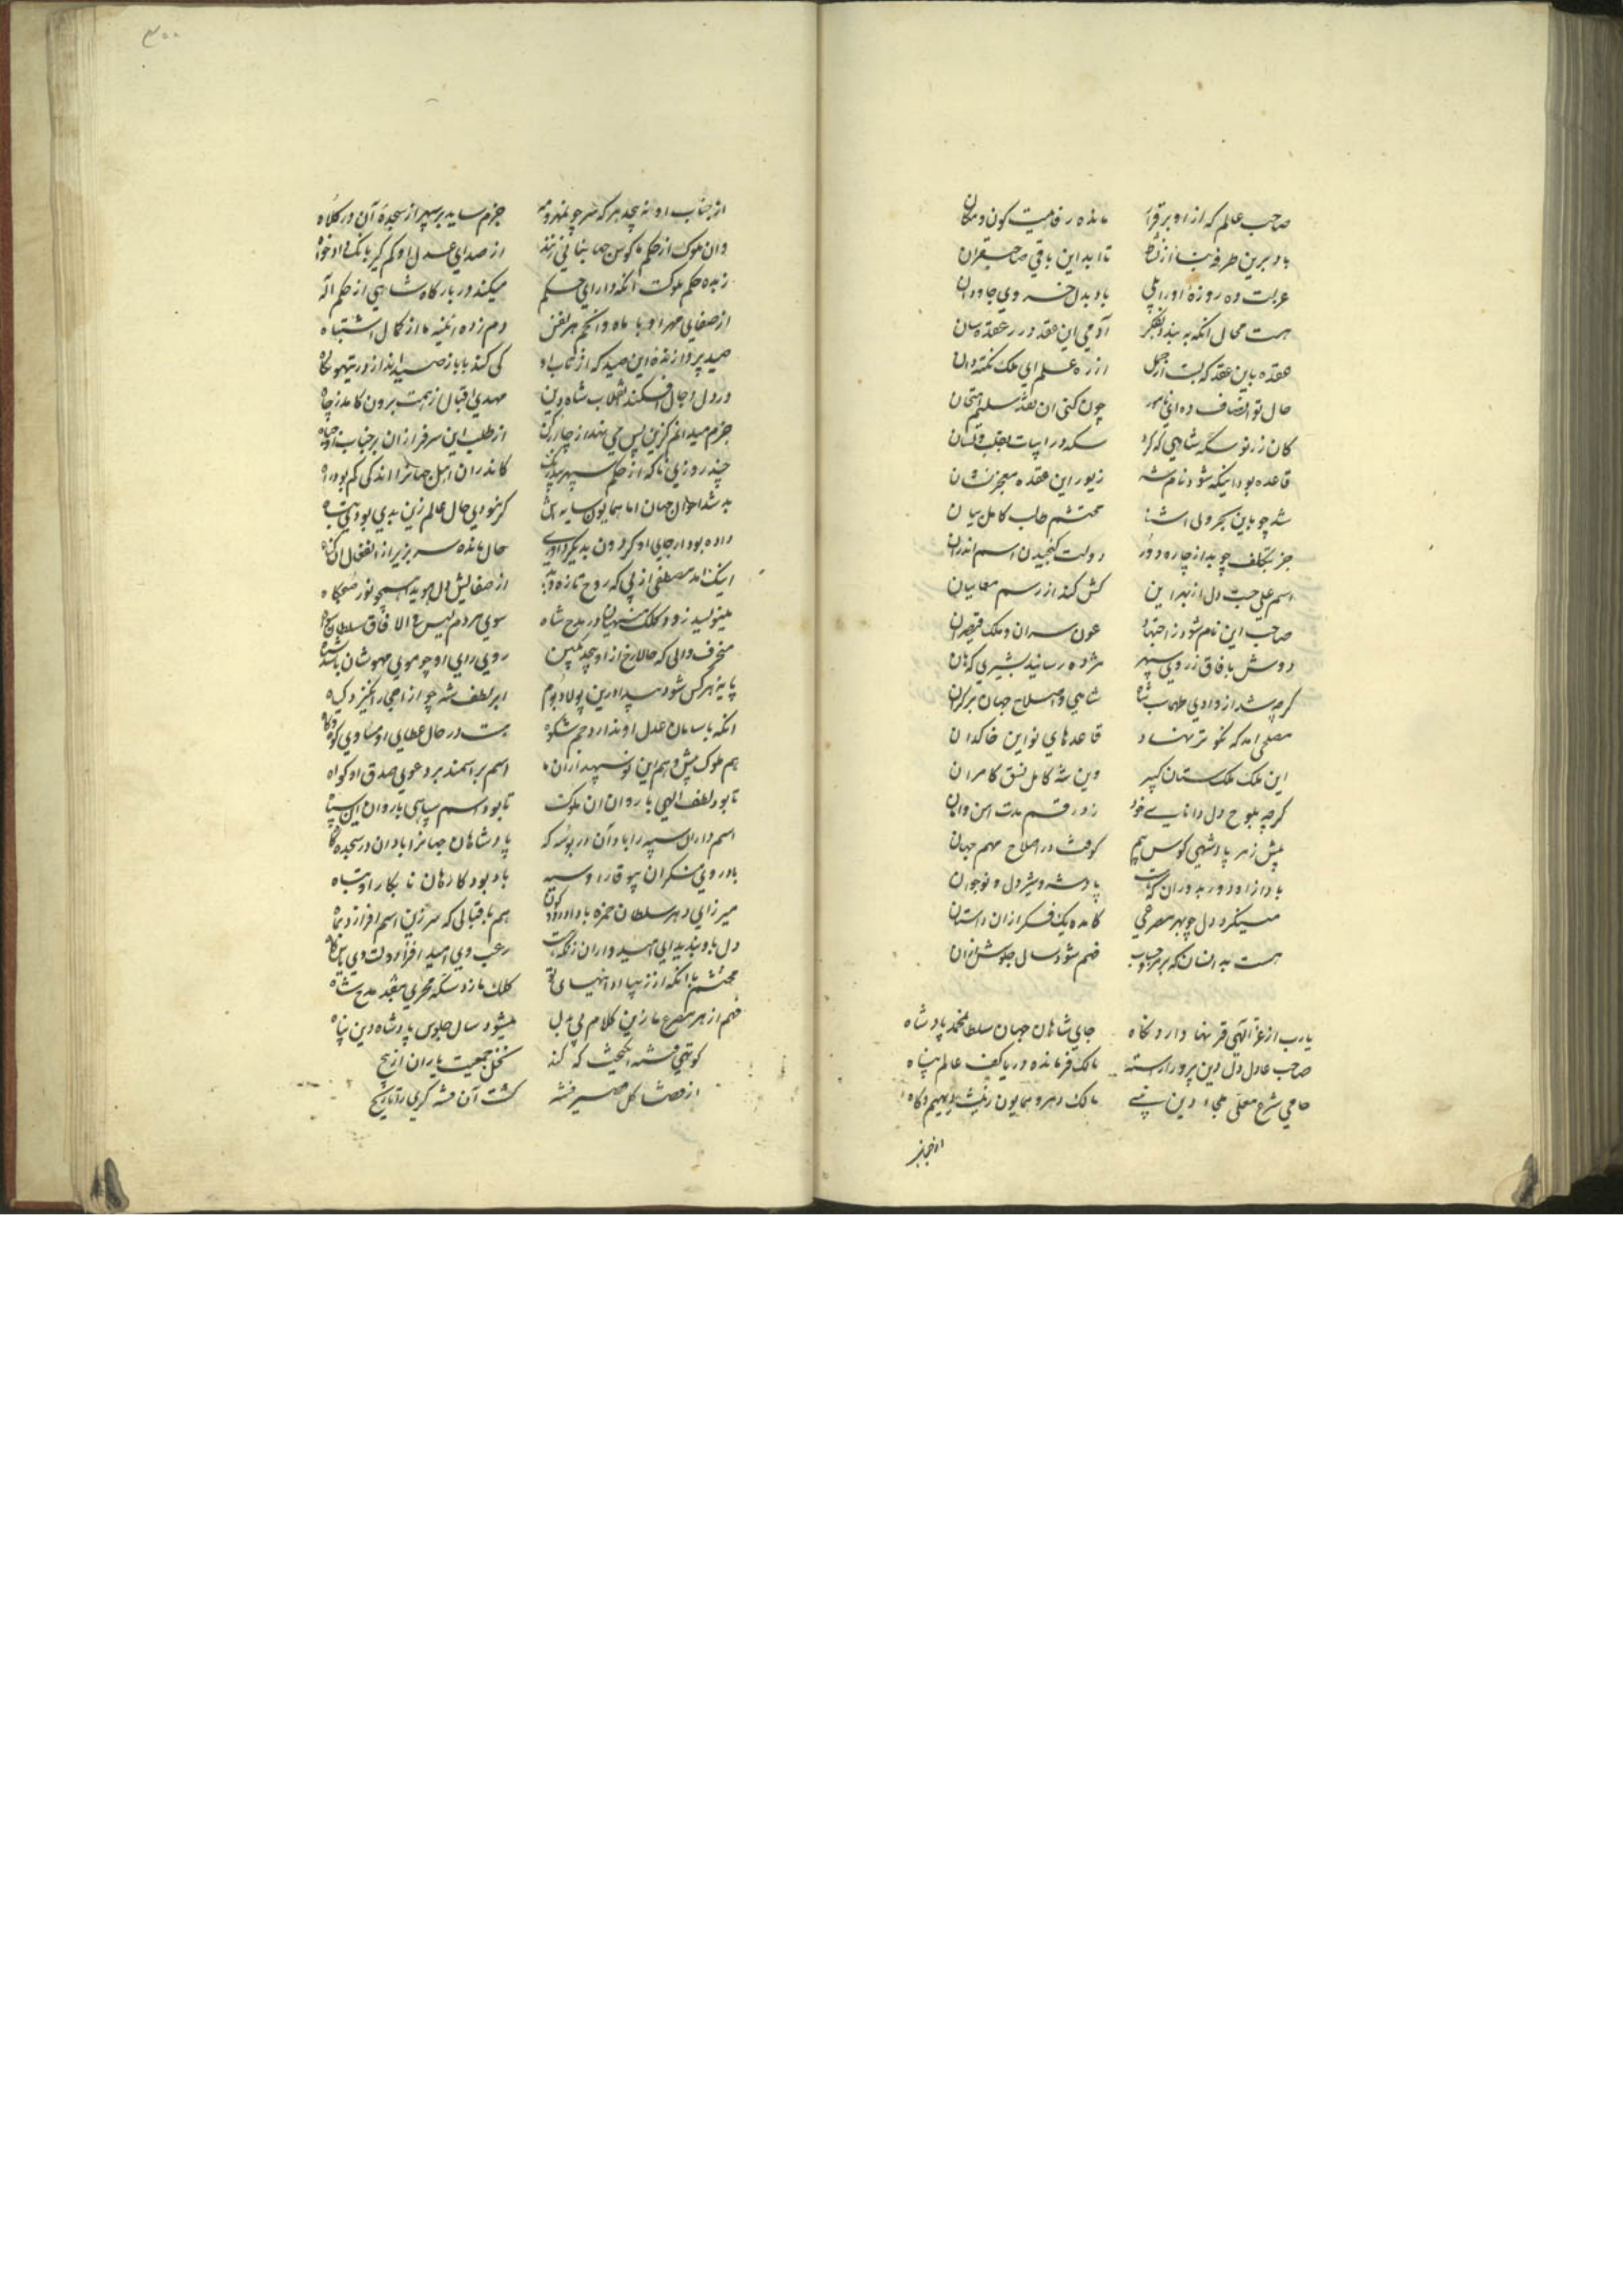 صاحب عالم که از او برقرار مانده رفاهیت کون و مکان
باد برین طرفه بنا از نشاط تا ابد این باقی صاحبقران
عزت ده روزه او را ولی باد بدل خسروی جاودان
هست محال انکه به بیند بفکر آدمی این عقد درر عقده سان
عقده باین عقد که بست از جمل از ره علم ای ملک نکته دان
حال تو انصاف ده ای نامور چون کنی ان نقد سلیم امتحان
کان زر نو سکه شاهی که کرد سکه در ابیات
قاعده بود اینکه شود نام شه زیور این عقده معجز نشان
شد چو باین بحر ولی اشنا محتشم طالب کامل بیان
جز بتکلف چو بد از چاره دور دولت گنجیدن اسم اندران
اسم علی حب دل از بهر این کش کند از رسم معاییان
صاحب این نام شود ز اجتهاد عون سران و ملک قیصران
دوش بافاق ز روی سپهر مژده رسانید بشیری که هان
کرچه شد از وادی طهماسب شاه شاهی و اصلاح جهان بر کران
مصلحی امد که نکو تر نهاد قاعدهای نو این خاکدان
این ملک ملک ستان کبیر وین شه کامل نسق کامران
کرچه بلوح دل دانای خود زد رقم مدت امن و امان
پیش ز هر پادشهی کوس هم کوفت در اصلاح مهم جهان
باد ازو دور بدوران که هست پادشه و شیردل و نوجوان
میکرد دل چو بهر مصرعی کامده یک فکر ازان داستان
هست بد انسان که بر هر حساب فهم شود سال جلوش ازان
یارب از عز الهی قرنها دارد نکاه جای شاهان جهان سلطان محمد پادشاه
صاحب عادل دل دین پرور اراسته مالک فرمانده دریا کف عالم پناه
حامی شرع معلی ملجاء دین نبی مالک دهر و همایون زینت دیهیم و کاه
از جناب
۳۰۰
از جناب او نه پیچد هر که سر چو مهر و مه جزم ساید بر سپهر از سجدهٔ آن در کلاه
وان ملوک از حکم ما کوس جهانبانی زنند از صدای عدل او کم گیر بانک دادخواه
زبده حکم ملوکت انکه دارای حکم میکند در بارگاه شاهی از حکم اله
از صفای مهر او با ماه و انجم هر نفس دم زده ائینه ما از کمال اشتباه
صید پردازنده این صید که از کی کند با باز صید انداز در تیهو نکاه
در دل دجال افکند انقلاب شاه دین مهدی اقبال ز همت برون کامد ز چاه
جزم میدانم کزین پس می نهند از چار رکن از طلب این سرفرازان بر جناب او جباه
چند روزی تا که از حکم سپهر کاندران اهل جهان را اندکی کم بود راه
بد شد احوال جهان اما همایون سایه اش کر نبودی حال عالم زین بدی بودی تباه
داده بود ار جای او کردون بدیکر داوری حال مانده سر بزیر از انفعال ان کناه
اینک امد مصطفی از پی که روح تازه از صفایش دل هوید همچو نور صبحگاه
مینویسد زود کلک منهیان در مدح شاه سوی مردم لیس فی الافاق سلطان سواه
منحرف دالی که حالا رخ از او پیچد بکین روی رای او چو موی مهوشان بادا سیاه
پایهٔ هر کس شود پیدا درین پولاد بوم ابر لطف شه چو از اجر انگیزد کیاه
انکه با سامان عدل او ندارد جم شکوه هست در حال عطای او مساوی کوه و کاه
هم ملوک پیش و هم این نو سپهداران ما اسم بر اسمند بر دعوی صدق او کواه
تا بود لطف الهی با روان ان ملوک تا بود اسم سپاهی با روان این سپاه
اسم داران سپه را باد آن در بوسه که پادشاهان جهان را باد ان در سجده گاه
باد روی منکران بیوقار او سیه باد بود کارهان نابکار او تباه
میرزای دهر سلطان حمزه باد هم باقبالی که سر زین اسم افرازد بماه
محتشم با انکه از زیبا ادائیهای کلک ما زد سکه فخری بنقد مدح شاه
فهم از هر مصرع ما زین کلام بی بدل میشود سال جلوس پادشاه دین پناه
کوتهی فتنه انگیخت که کند نخل جمعیت یاران از بیخ
از قضا شکل صغیر فتنه گشت آن فتنه گری را تاریخ